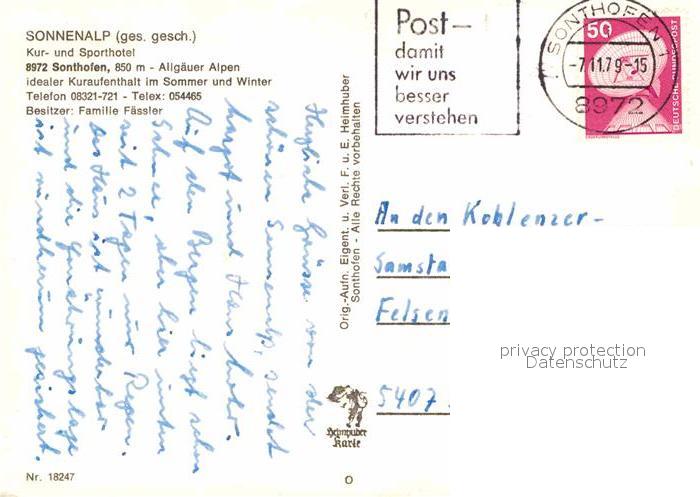 SONNENALP (ges. gesch.)
Kur- und Sporthotel
8972 Sonthofen, 850 m - Allgäuer Alpen
idealer Kuraufenthalt im Sommer und Winter
Telefon 08321-721 - Telex: 054465
Besitzer: Familie Fässler
Herzliche Grüsse von der
schönen Sonnenalp, sendet
Margot und Hans
Auf den Bergen liegt schon
Schnee, aber hier unten
seit 2 Tagen nur Regen.
Das Haus ist wunderbar
und die
ist rundherum gesichert.
Nr. 18247
Orig.-Aufn. Eigent. u. Verl. F. u. E. Heimhuber
Sonthofen - Alle Rechte vorbehalten
Heimhuber
Karte
Post-
damit
wir uns
besser
verstehen
SONTHOFEN 1
-7.11.79-15
8972
50
DEUTSCHE BUNDESPOST
An den Koblenzer-
Samsta
Felsen
5407
privacy protection
Datenschutz